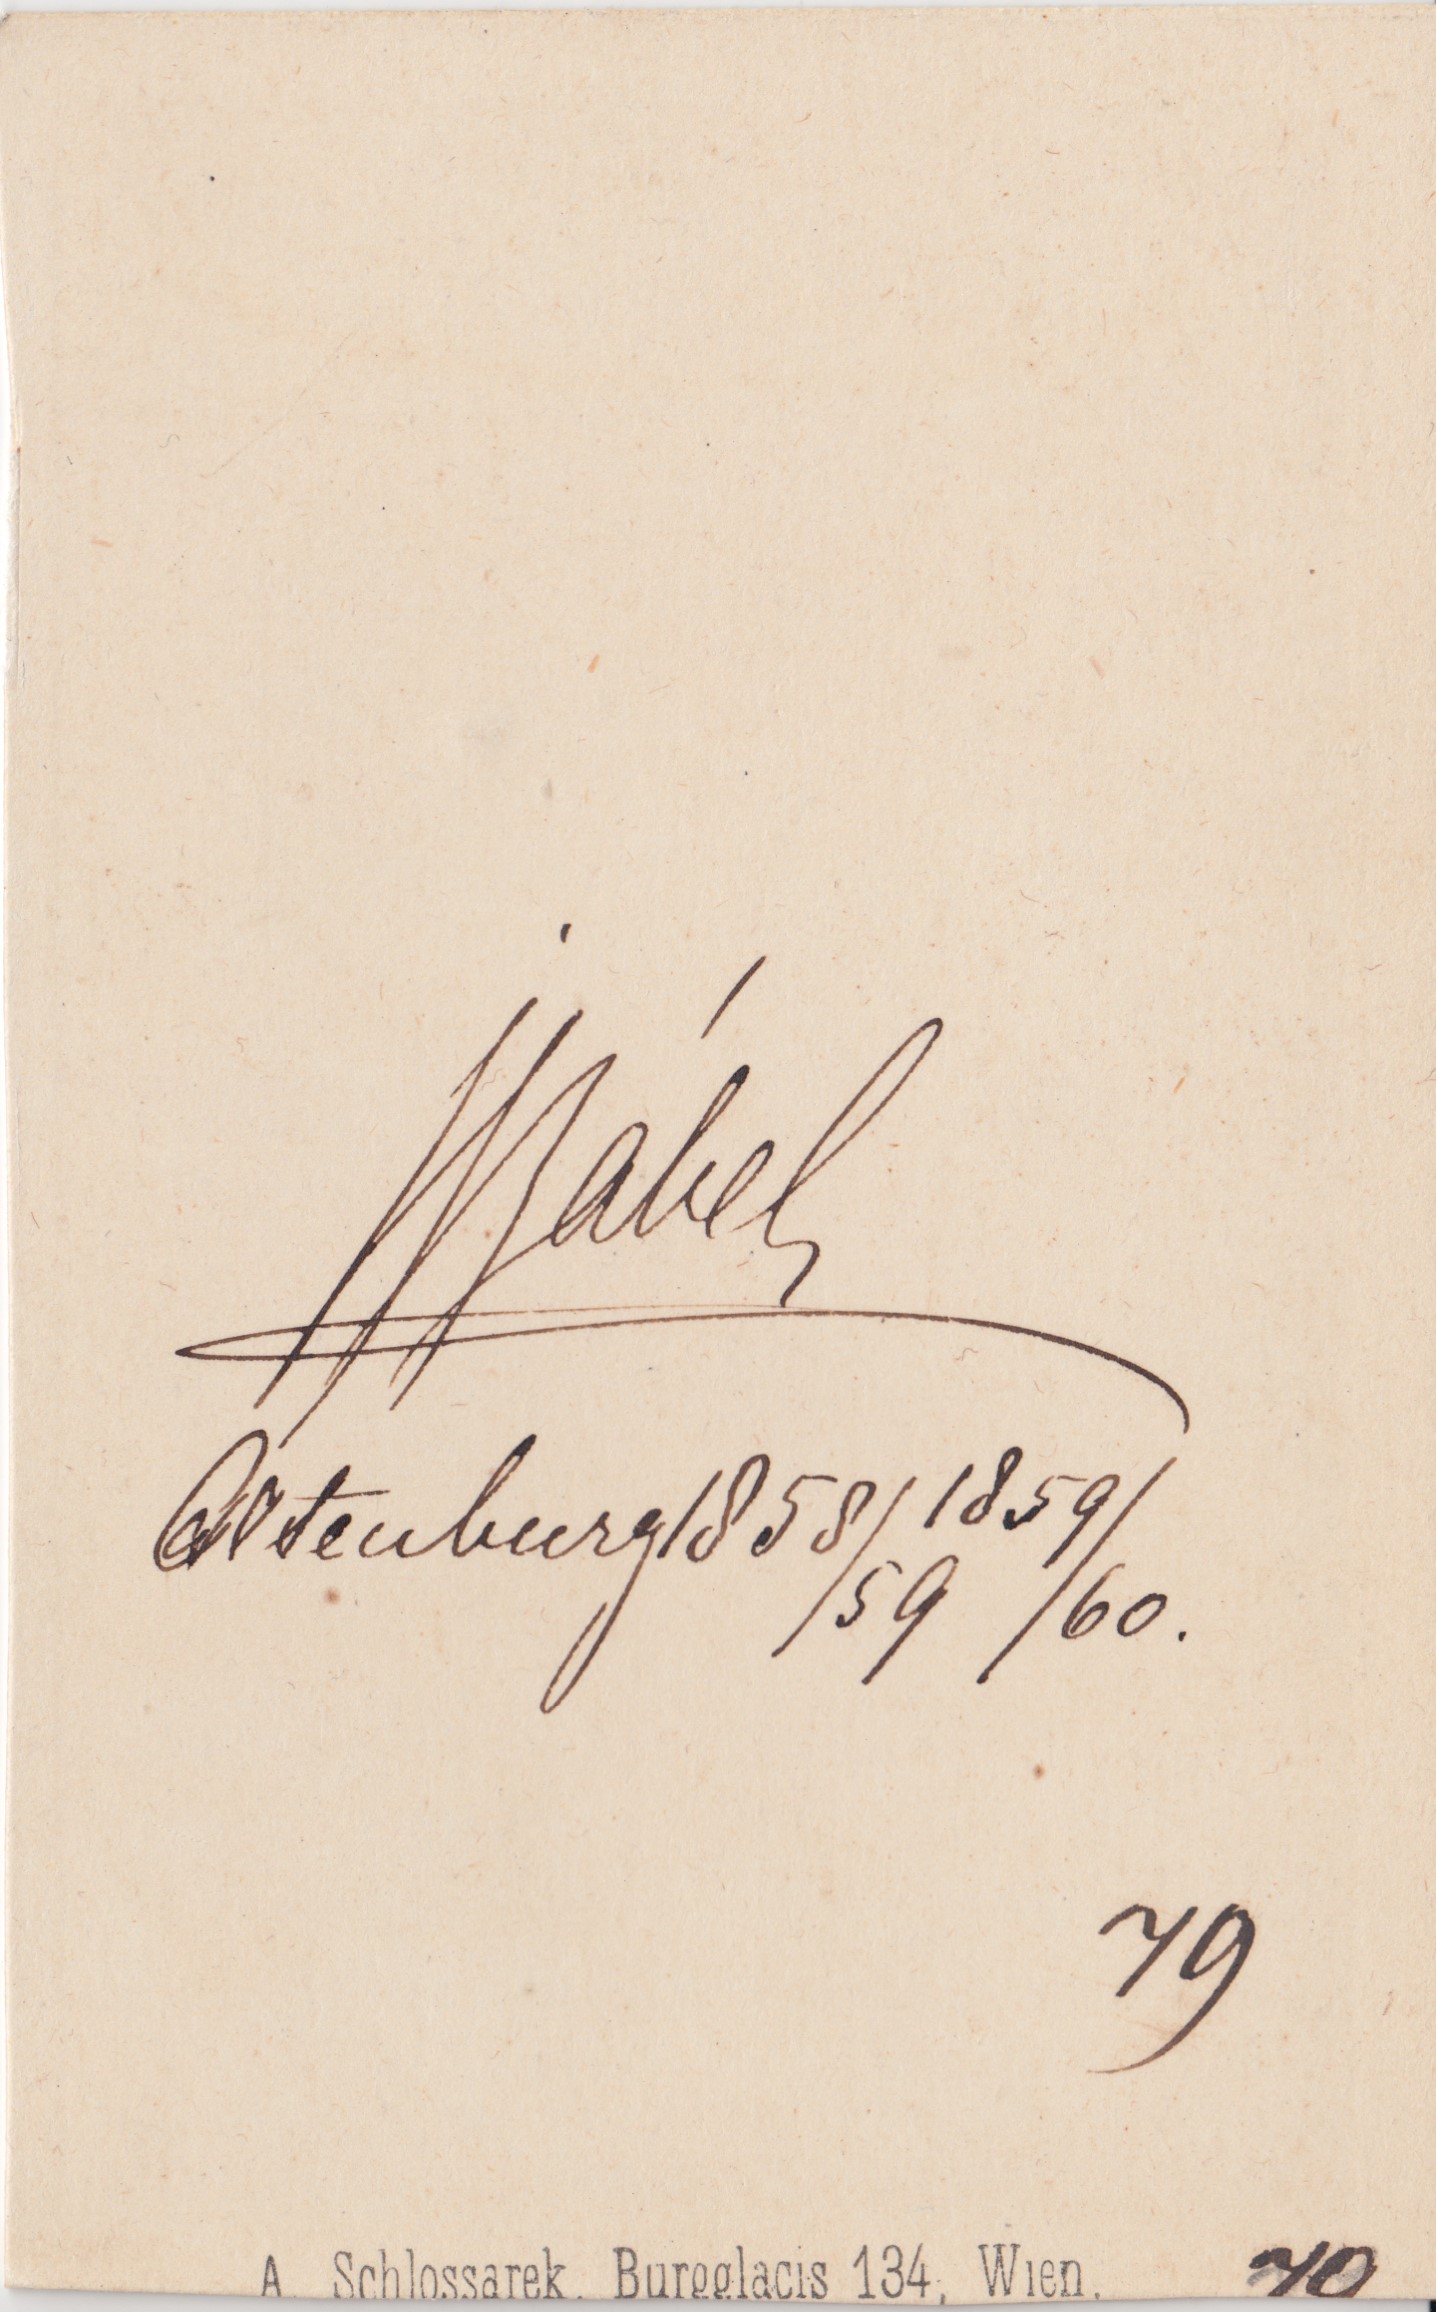 Altenburg 1858/59 1859/60.
79
A. Schlossarek, Burgglacis 134, Wien.